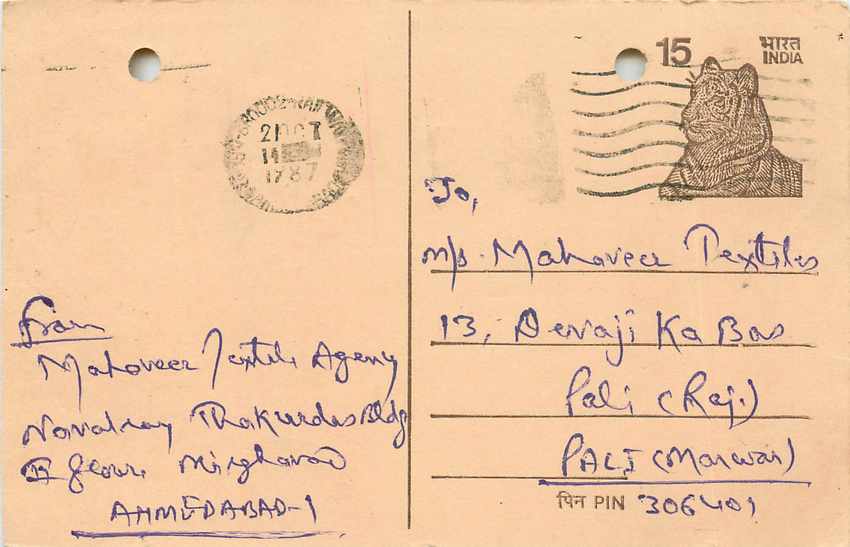 15
भारत
INDIA
21 OCT
1987
To,
M/s. Mahaveer Textiles
13, Devaji Ka Bas
Pali (Raj.)
PALI (Marwar)
पिन PIN 306401
From
Mahaveer Textile Agency
Navalray Thakurdas Bldg
II floor,
AHMEDABAD-1